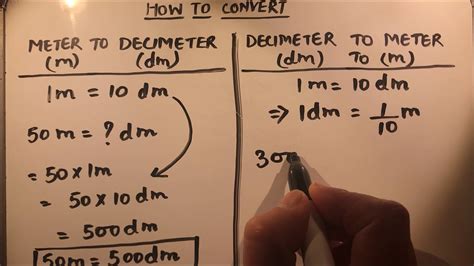 HOW TO CONVERT
METER TO DECIMETER
(m) (dm)
1m = 10 dm
50 m = ? dm
= 50 x 1m
= 50 x 10 dm
= 500 dm
50m = 500dm
DECIMETER TO METER
(dm) TO (m)
1m = 10dm
⇒ 1dm = 1/10 m
300